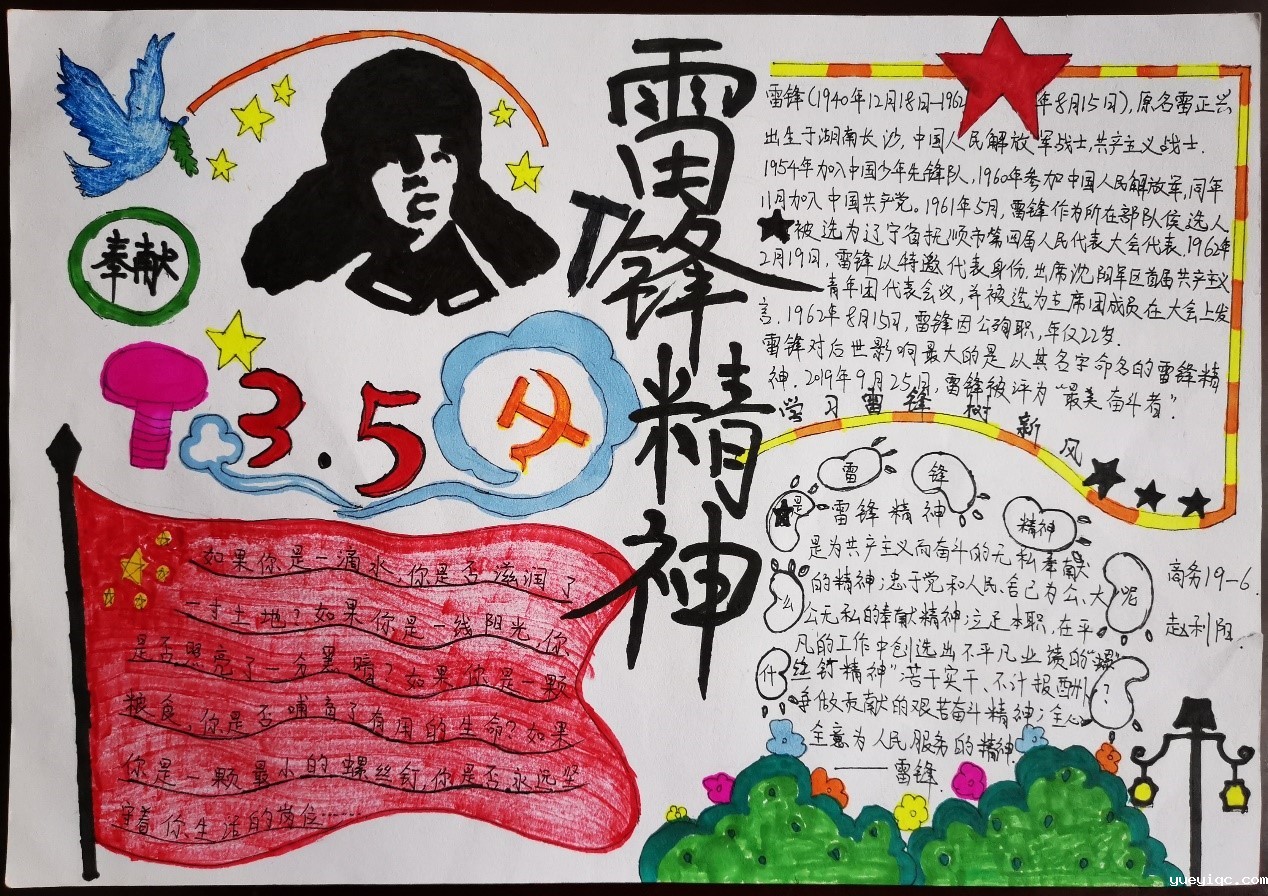 雷锋精神
奉献
3.5
雷锋(1940年12月18日—1962年8月15日),原名雷正兴
出生于湖南长沙,中国人民解放军战士,共产主义战士.
1954年加入中国少年先锋队,1960年参加中国人民解放军,同年
11月加入中国共产党。1961年5月,雷锋作为所在部队侯选人
被选为辽宁省抚顺市第四届人民代表大会代表.1962年
2月19日,雷锋以特邀代表身份,出席沈阳军区首届共产主义
青年团代表会议,并被选为主席团成员在大会上发
言.1962年8月15日,雷锋因公殉职,年仅22岁.
雷锋对后世影响最大的是以其名字命名的雷锋精
神.2019年9月25日,雷锋被评为“最美奋斗者”.
学习雷锋树新风
雷锋精神是什么呢?
雷锋精神
是为共产主义而奋斗的无私奉献
的精神;忠于党和人民、舍己为公、大
公无私的奉献精神;立足本职、在平
凡的工作中创造出不平凡业绩的“螺
丝钉精神”;苦干实干、不计报酬、
争做贡献的艰苦奋斗精神;全心
全意为人民服务的精神.
——雷锋.
商务19-6
赵利阳
如果你是一滴水,你是否滋润了
一寸土地?如果你是一线阳光,你
是否照亮了一分黑暗?如果你是一颗
粮食,你是否哺育了有用的生命?如果
你是一颗最小的螺丝钉,你是否永远坚
守着你生活的岗位……
yueyiqc.com